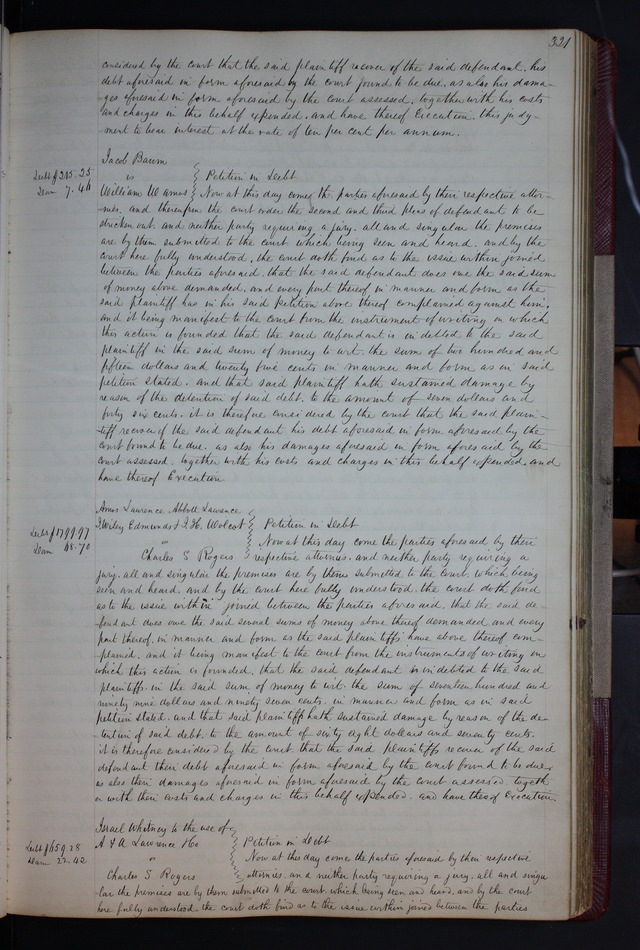 321
considered by the court that the said plaintiff recover of the said defendant. his
debt aforesaid in form aforesaid by the court found to be due, as also his dama-
-ges aforesaid in form aforesaid by the court assessed, together with his costs
and charges in this behalf expended, and have thereof Execution. this judg-
-ment to bear interest at the rate of ten per cent per annum.
Jacob Baum
Debt $215.25 vs Petition in Debt
Dam 7.46 William W Amos Now at this day comes the parties aforesaid by their respective attor-
-neys, and thereupon the court order the second and third pleas of defendant to be
stricken out. and neither party requiring a jury. all and singular the premises
are by them submitted to the court which being seen and heard. and by the
court here fully understood. the court doth find as to the issue within joined
between the parties aforesaid, that the said defendant does owe the said sum
of money above demanded, and every part thereof in manner and form as the
said plaintiff has in his said petition above thereof complained against him.
and it being manifest to the court from the instrument of writing on which
this action is founded that the said defendant is indebted to the said
plaintiff in the said sum of money to wit. the sum of two hundred and
fifteen dollars and twenty five cents in manner and form as in said
petition stated. and that said plaintiff hath sustained damage by
reason of the detention of said debt. to the amount of seven dollars and
forty six cents. it is therefore considered by the court that the said plain-
-tiff recover of the said defendant his debt aforesaid in form aforesaid by the
court found to be due. as also his damages aforesaid in form aforesaid by the
court assessed. together with his costs and charges in this behalf expended, and
have thereof Execution
Amos Lawrence Abbott Lawrence
Debt $1799.97 J. Wiley Edmunds & J. H. Wolcot Petition in Debt
Dam 68.70 " Now at this day come the parties aforesaid by their
Charles S. Rogers respective attornies. and neither party requiring a
jury. all and singular the premises are by them submitted to the court. which being
seen and heard. and by the court here fully understood. the court doth find
as to the issue within joined between the parties aforesaid, that the said de-
-fendant does owe the said several sums of money above thereof demanded and every
part thereof. in manner and form as the said plaintiffs have above thereof com-
-plained. and it being manifest to the court from the instruments of writing on
which this action is founded, that the said defendant is indebted to the said
plaintiffs. in the said sum of money to wit. the sum of seventeen hundred and
ninety nine dollars and ninety seven cents. in manner and form as in said
petition stated. and that said plaintiffs hath sustained damage by reason of the de-
-tention of said debt. to the amount of sixty eight dollars and seventy cents.
it is therefore considered by the court that the said plaintiffs recover of the said
defendant their debt aforesaid in form aforesaid by the court found to be due,
as also their damages aforesaid in form aforesaid by the court assessed. togeth
er with their costs and charges in this behalf expended. and have thereof Execution
Israel Whitney to the use of
Debt $659.28 A & A Lawrence & Co Petition in Debt
Dam 22.42 " Now at this day come the parties aforesaid by their respective
Charles S Rogers attornies. and neither party requiring a jury. all and singu
lar the premises are by them submitted to the court. which being seen and heard. and by the court
here fully understood the court doth find as to the issue within joined between the parties